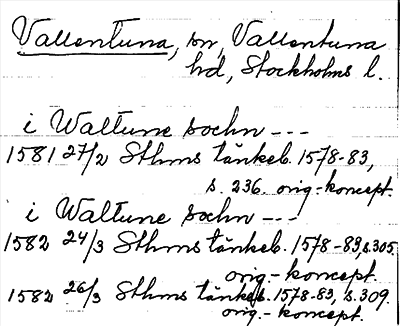 Vallentuna, sn, Vallentuna
hd, Stockholms l.
i Waltune sochn ---
1581 27/2 Sthms tänkeb. 1578-83,
s. 236 orig.-koncept.
i Waltune sochn ---
1582 24/3 Sthms tänkeb. 1578-83, s.305
orig.-koncept.
1582 26/3 Sthms tänkeb. 1578-83, s.309.
orig.-koncept.